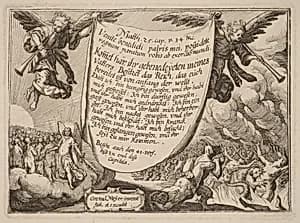 Matth. 25. cap. v. 34. etc.
Venite benedicti patris mei, possidete
regnum paratum vobis ab exordio mundi
Komet har ihr gebenedeyeten meines
Vatters Besitzet das Reich, das euch
bereitet ist von anfang der welt.
Dan ich bin hungerig gewesen, und ihr habt
mich gespeiset. Ich bin durstig gewesen,
und ihr habt mich getränckt. Ich bin ein
gast gewesen, und ihr habt mich beherberget.
Ich bin nacket gewesen, und ihr
habt mich bekleidet. Ich bin kranck
gewesen, und ihr habt mich besucht.
Ich bin gefangen gewesen, und ihr
seit zu mir kommen.
Besihe auch den 41. vers.
und end diß
Capitels.
Conrad Meyer invent
fecit